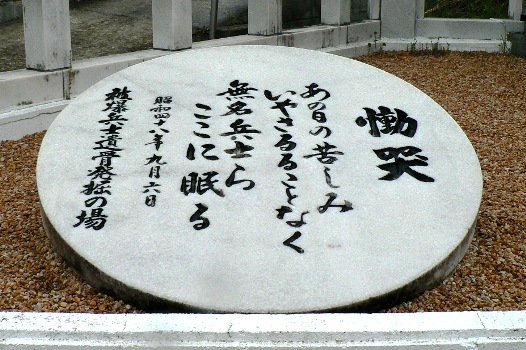 慟哭
あの日の苦しみ
いやさるることなく
無名兵士ら
ここに眠る
昭和四十八年九月六日
被爆兵士遺骨発掘の場